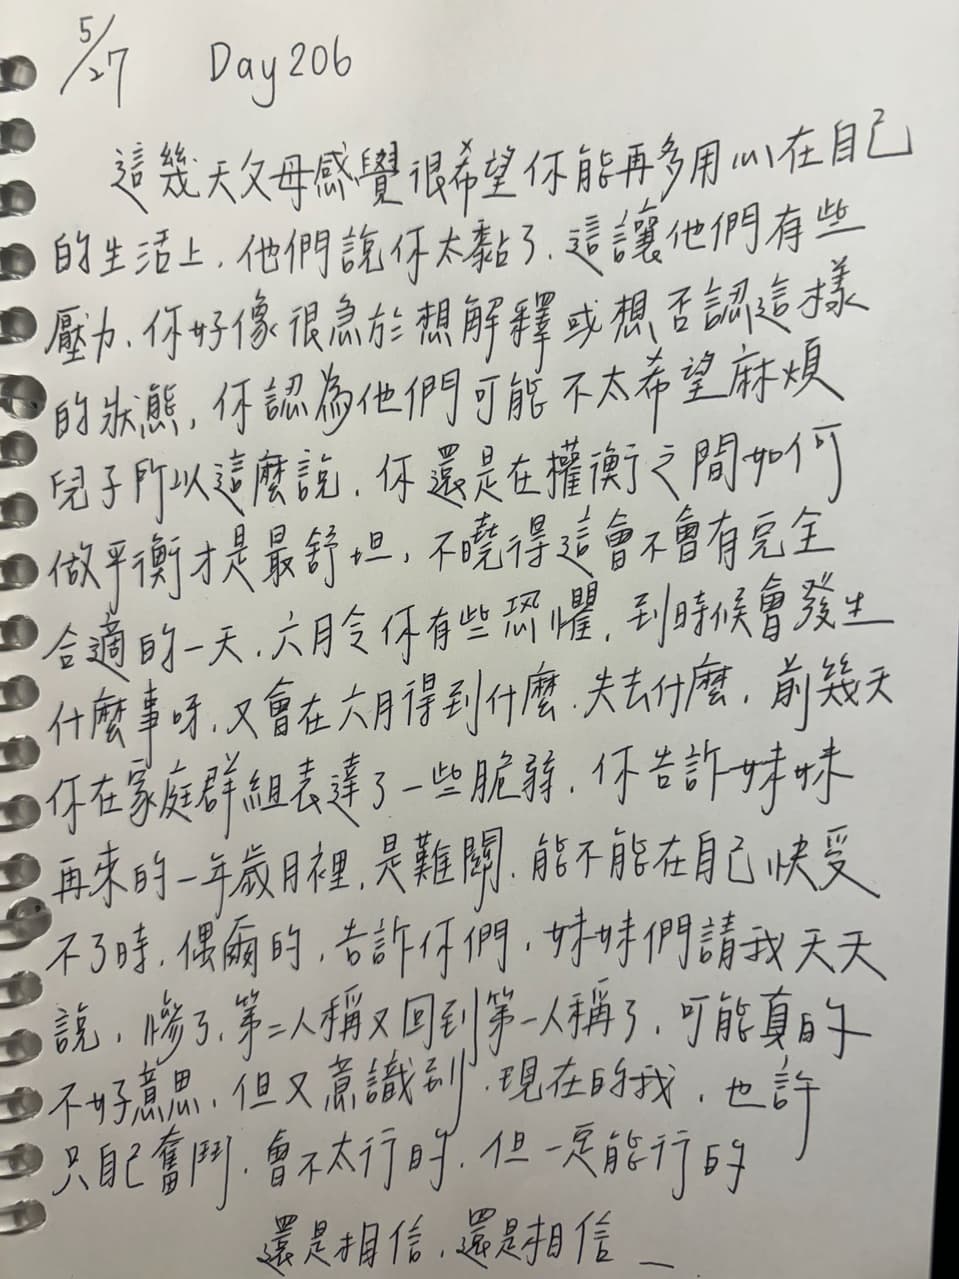 5/27 Day 206
這幾天父母感覺很希望你能再多用心在自己
的生活上,他們說你太黏了,這讓他們有些
壓力,你好像很急於想解釋或想否認這樣
的狀態,你認為他們可能不太希望麻煩
兒子所以這麼說,你還是在權衡之間如何
做平衡才是最舒坦,不曉得這會不會有完全
合適的一天,六月令你有些恐懼,到時候會發生
什麼事呀,又會在六月得到什麼.失去什麼,前幾天
你在家庭群組表達了一些脆弱,你告訴妹妹
再來的一年歲月裡,是難關,能不能在自己快受
不了時,偶爾的,告訴你們,妹妹們請我天天
說,慘了,第二人稱又回到第一人稱了,可能真的
不好意思,但又意識到,現在的我,也許
只自己奮鬥,會不太行的,但一定能行的
還是相信,還是相信_